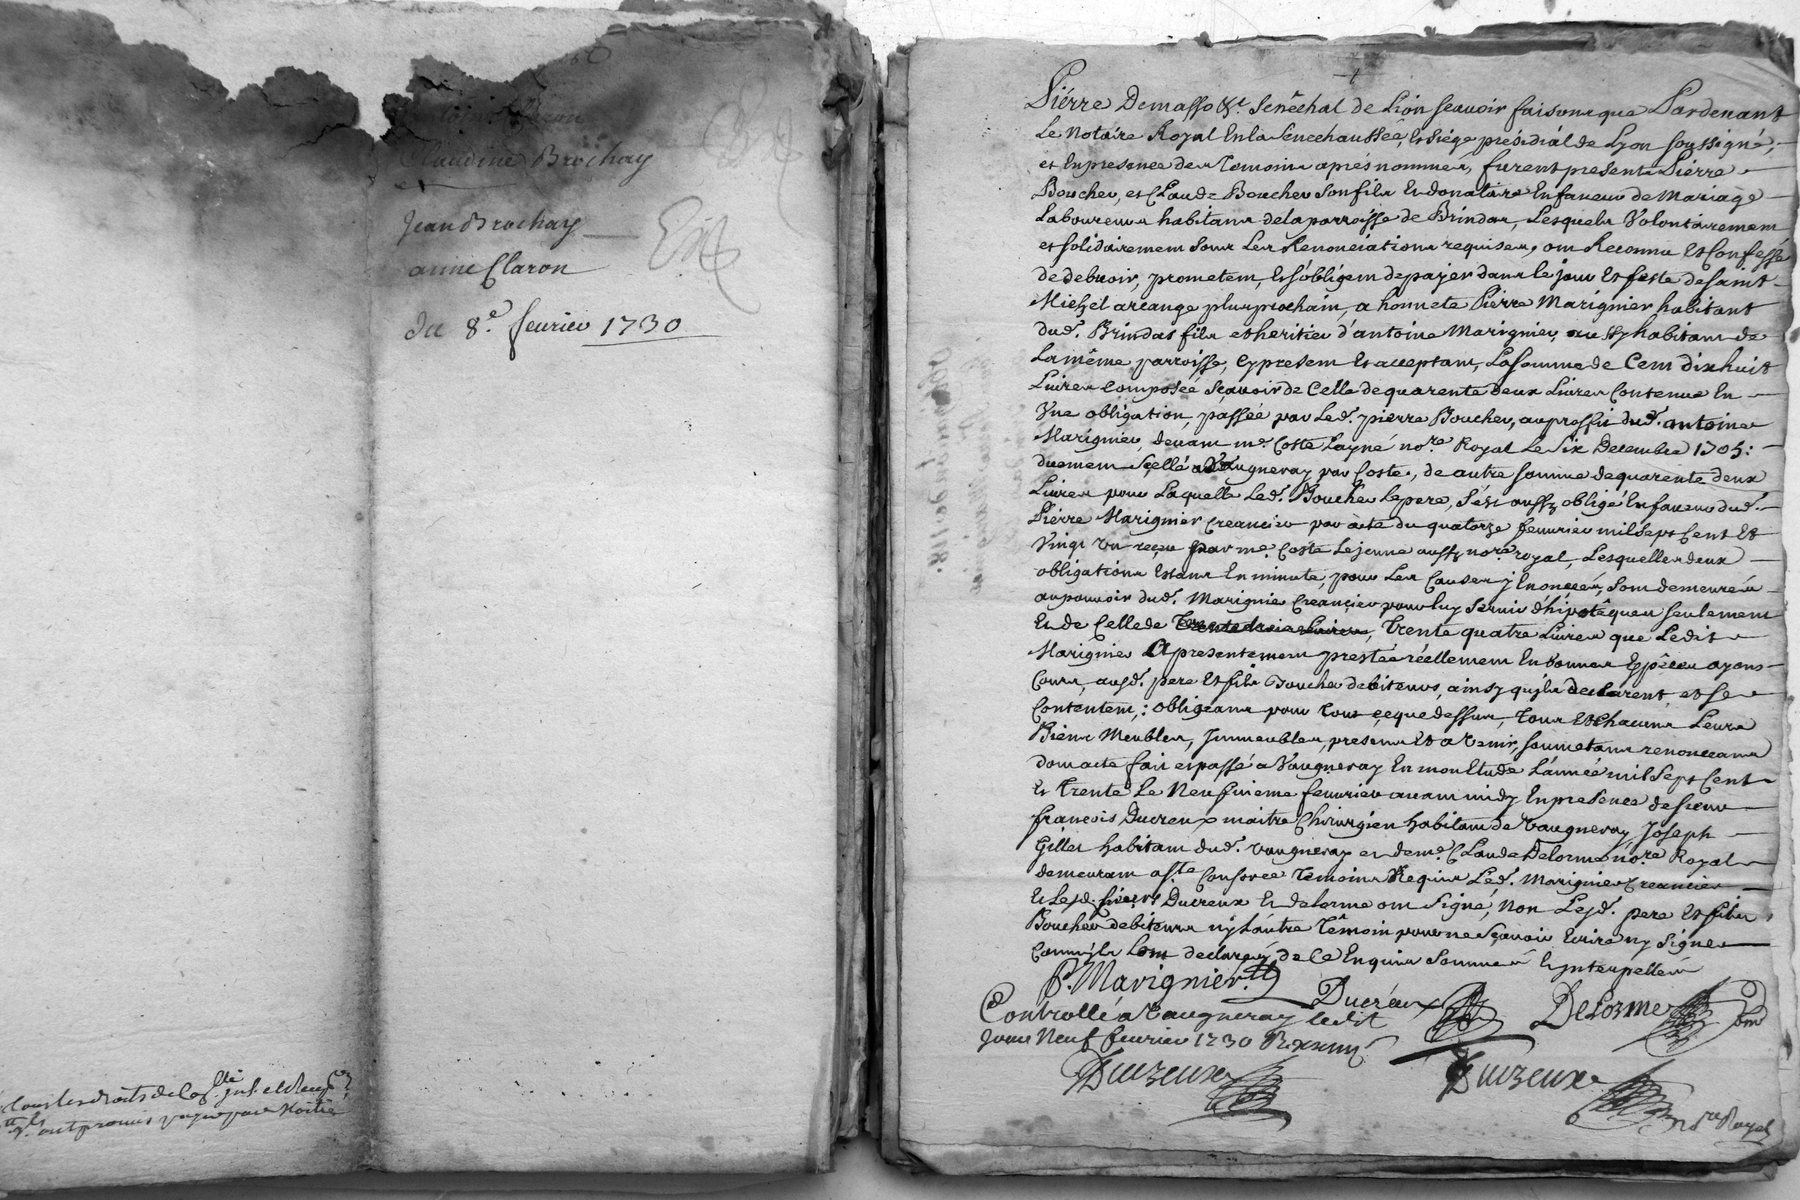 Claudine Brochay
Jean Brochay
anne Claron
Ext
du 8.e feurier 1730
tous les droits de la
ont promis payer par Moitié
Piérre Demasso &c. Senéchal de Lion scauoir faisons que Pardeuant
Le Notaire Royal En la Senechaussée, Et Siége présidiál de Lyon soussigné,
et En presence des Temoins aprés nommés, furent presents Pierre
Boucher, et Claude Boucher son fils Et donataire En faueur de Mariage
Laboureurs habitans de la parroisse de Brindas, Lesquels Volontairement
et solidairement sous Les Renonciations requises, ont Reconnu Et Confessé
de debuoir, prometent, Et s'obligent de payer dans le jour Et feste de saint
Michel arcange plus prochain, a honnete Pierre Marignier habitant
dud. Brindas fils et heritier d'antoine Marignier, aussy habitant de
La même parroisse, cy present Et acceptant, La somme de Cent dix huit
Liures composée Sçauoir de Celle de quarente deux Liures Contenue En
Vne obligation, passée par Led. pierre Boucher, au proffit dud. antoine
Marignier, deuant me. Coste L'ayné nore. Royal Le Six Decembre 1705:
duement Scellé a Vaugneray par Coste, de autre somme de quarente deux
Liures pour Laquelle Led. Boucher Le pere, s'ést aussy obligé En faueur dud.
Pierre Marignier creancier par acte du quatorze feurier mil sept Cent Et
Vingt Vn reçeu par me. Coste Le jeune aussy nore royal, Lesquelles deux
obligations Estant En minute, pour Les Causes y Enoncées, sont demeurées
au pouuoir dud. Marignier Creancier pour luy seruir d'hipotêques seulement
Et de Celle de Trente trois Liures, Trente quatre Liures que Ledit
Marignier A presentement prestée réellement En bonnes Espêces ayons
Cours, ausd. pere Et fils Boucher debiteurs, ainsy qu'ils declarent, et se
Contentent,: obligeans pour Tout ce que dessus, Tous Et Chacuns Leurs
Biens Meubles, Immeubles, presens Et a Venir, soumetans renonceans
dont acte fait et passé a Vaugneray En mon Etude L'année mil Sept Cent
Et Trente Le Neufuieme feurier auant midy En presence de sieur
françois Ducreux maitre Chirurgien habitant de Vaugneray, Joseph
Gillet habitant dud. Vaugneray et de me. Claude Delorme nore. Royal
demeurant a Ste Consorce Temoins Requis Led. Marignier Creancier
Et Lesd. sieurs Ducreux Et delorme ont Signé, Non Lesd. pere Et fils
Boucher debiteurs ny L'autre Têmoin pour ne Sçauoir Ecrire ny Signer
Comm'ils L'ont declaré, de Ce Enquis Sommés Et Interpellés
P. Marignier
Ducreux
Delorme
Controllé a Vaugneray ledit
Jour Neuf feurier 1730
Ducreux
Ducreux
nore Royal